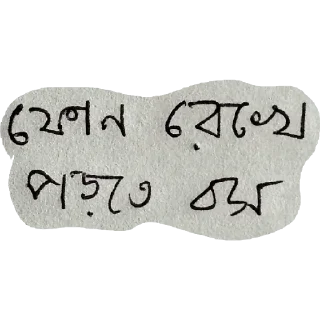 ফোন রেখে
পড়তে বস